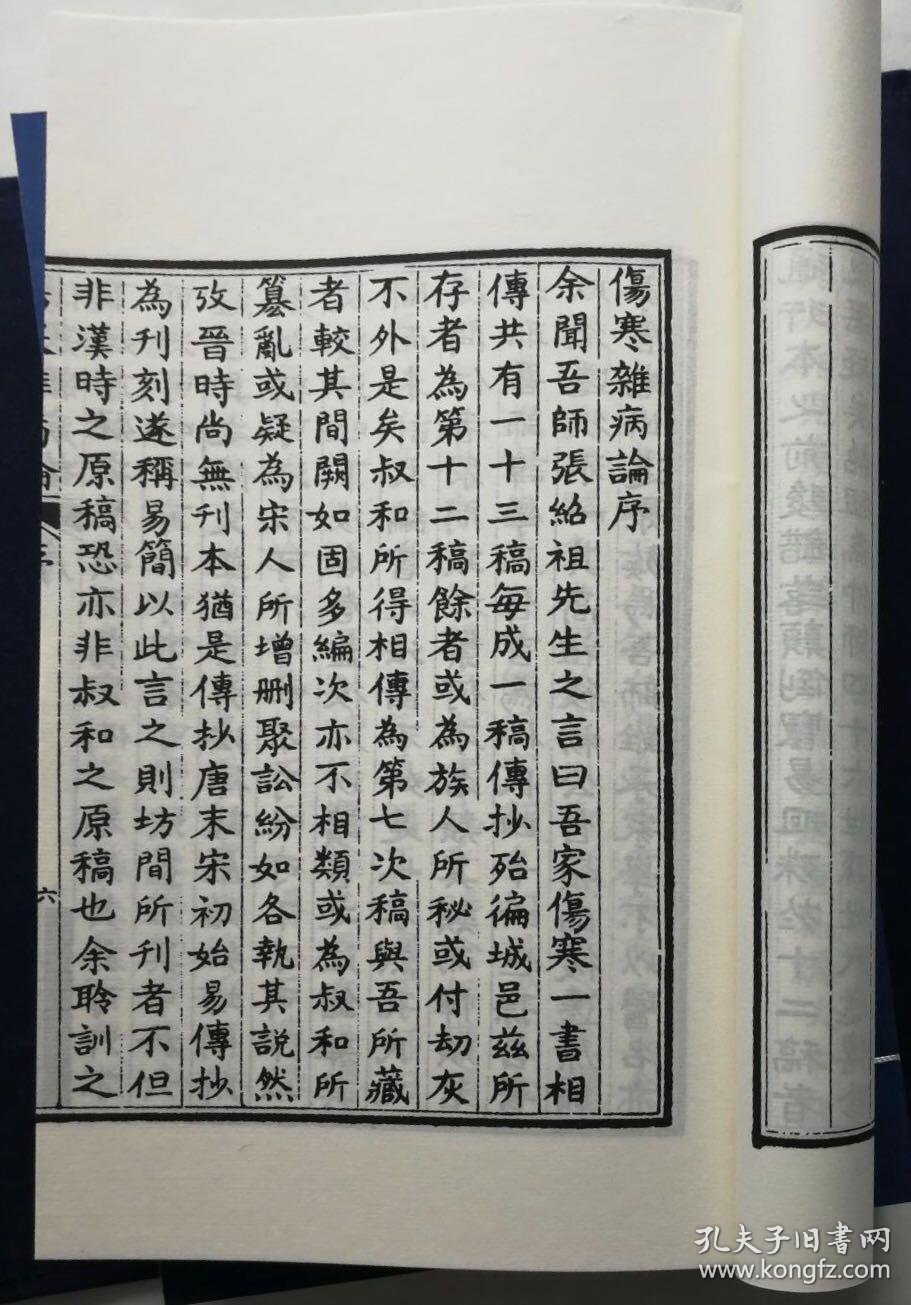 傷寒雜病論序
余聞吾師張紹祖先生之言曰吾家傷寒一書相
傳共有一十三稿每成一稿傳抄殆徧城邑茲所
存者為第十二稿餘者或為族人所秘或付劫灰
不外是矣叔和所得相傳為第七次稿與吾所藏
者較其間闕如固多編次亦不相類或為叔和所
篡亂或疑為宋人所增刪聚訟紛如各執其說然
攷晉時尚無刊本猶是傳抄唐末宋初始易傳抄
為刊刻遂稱易簡以此言之則坊間所刊者不但
非漢時之原稿恐亦非叔和之原稿也余聆訓之
六
孔夫子旧书网
www.kongfz.com